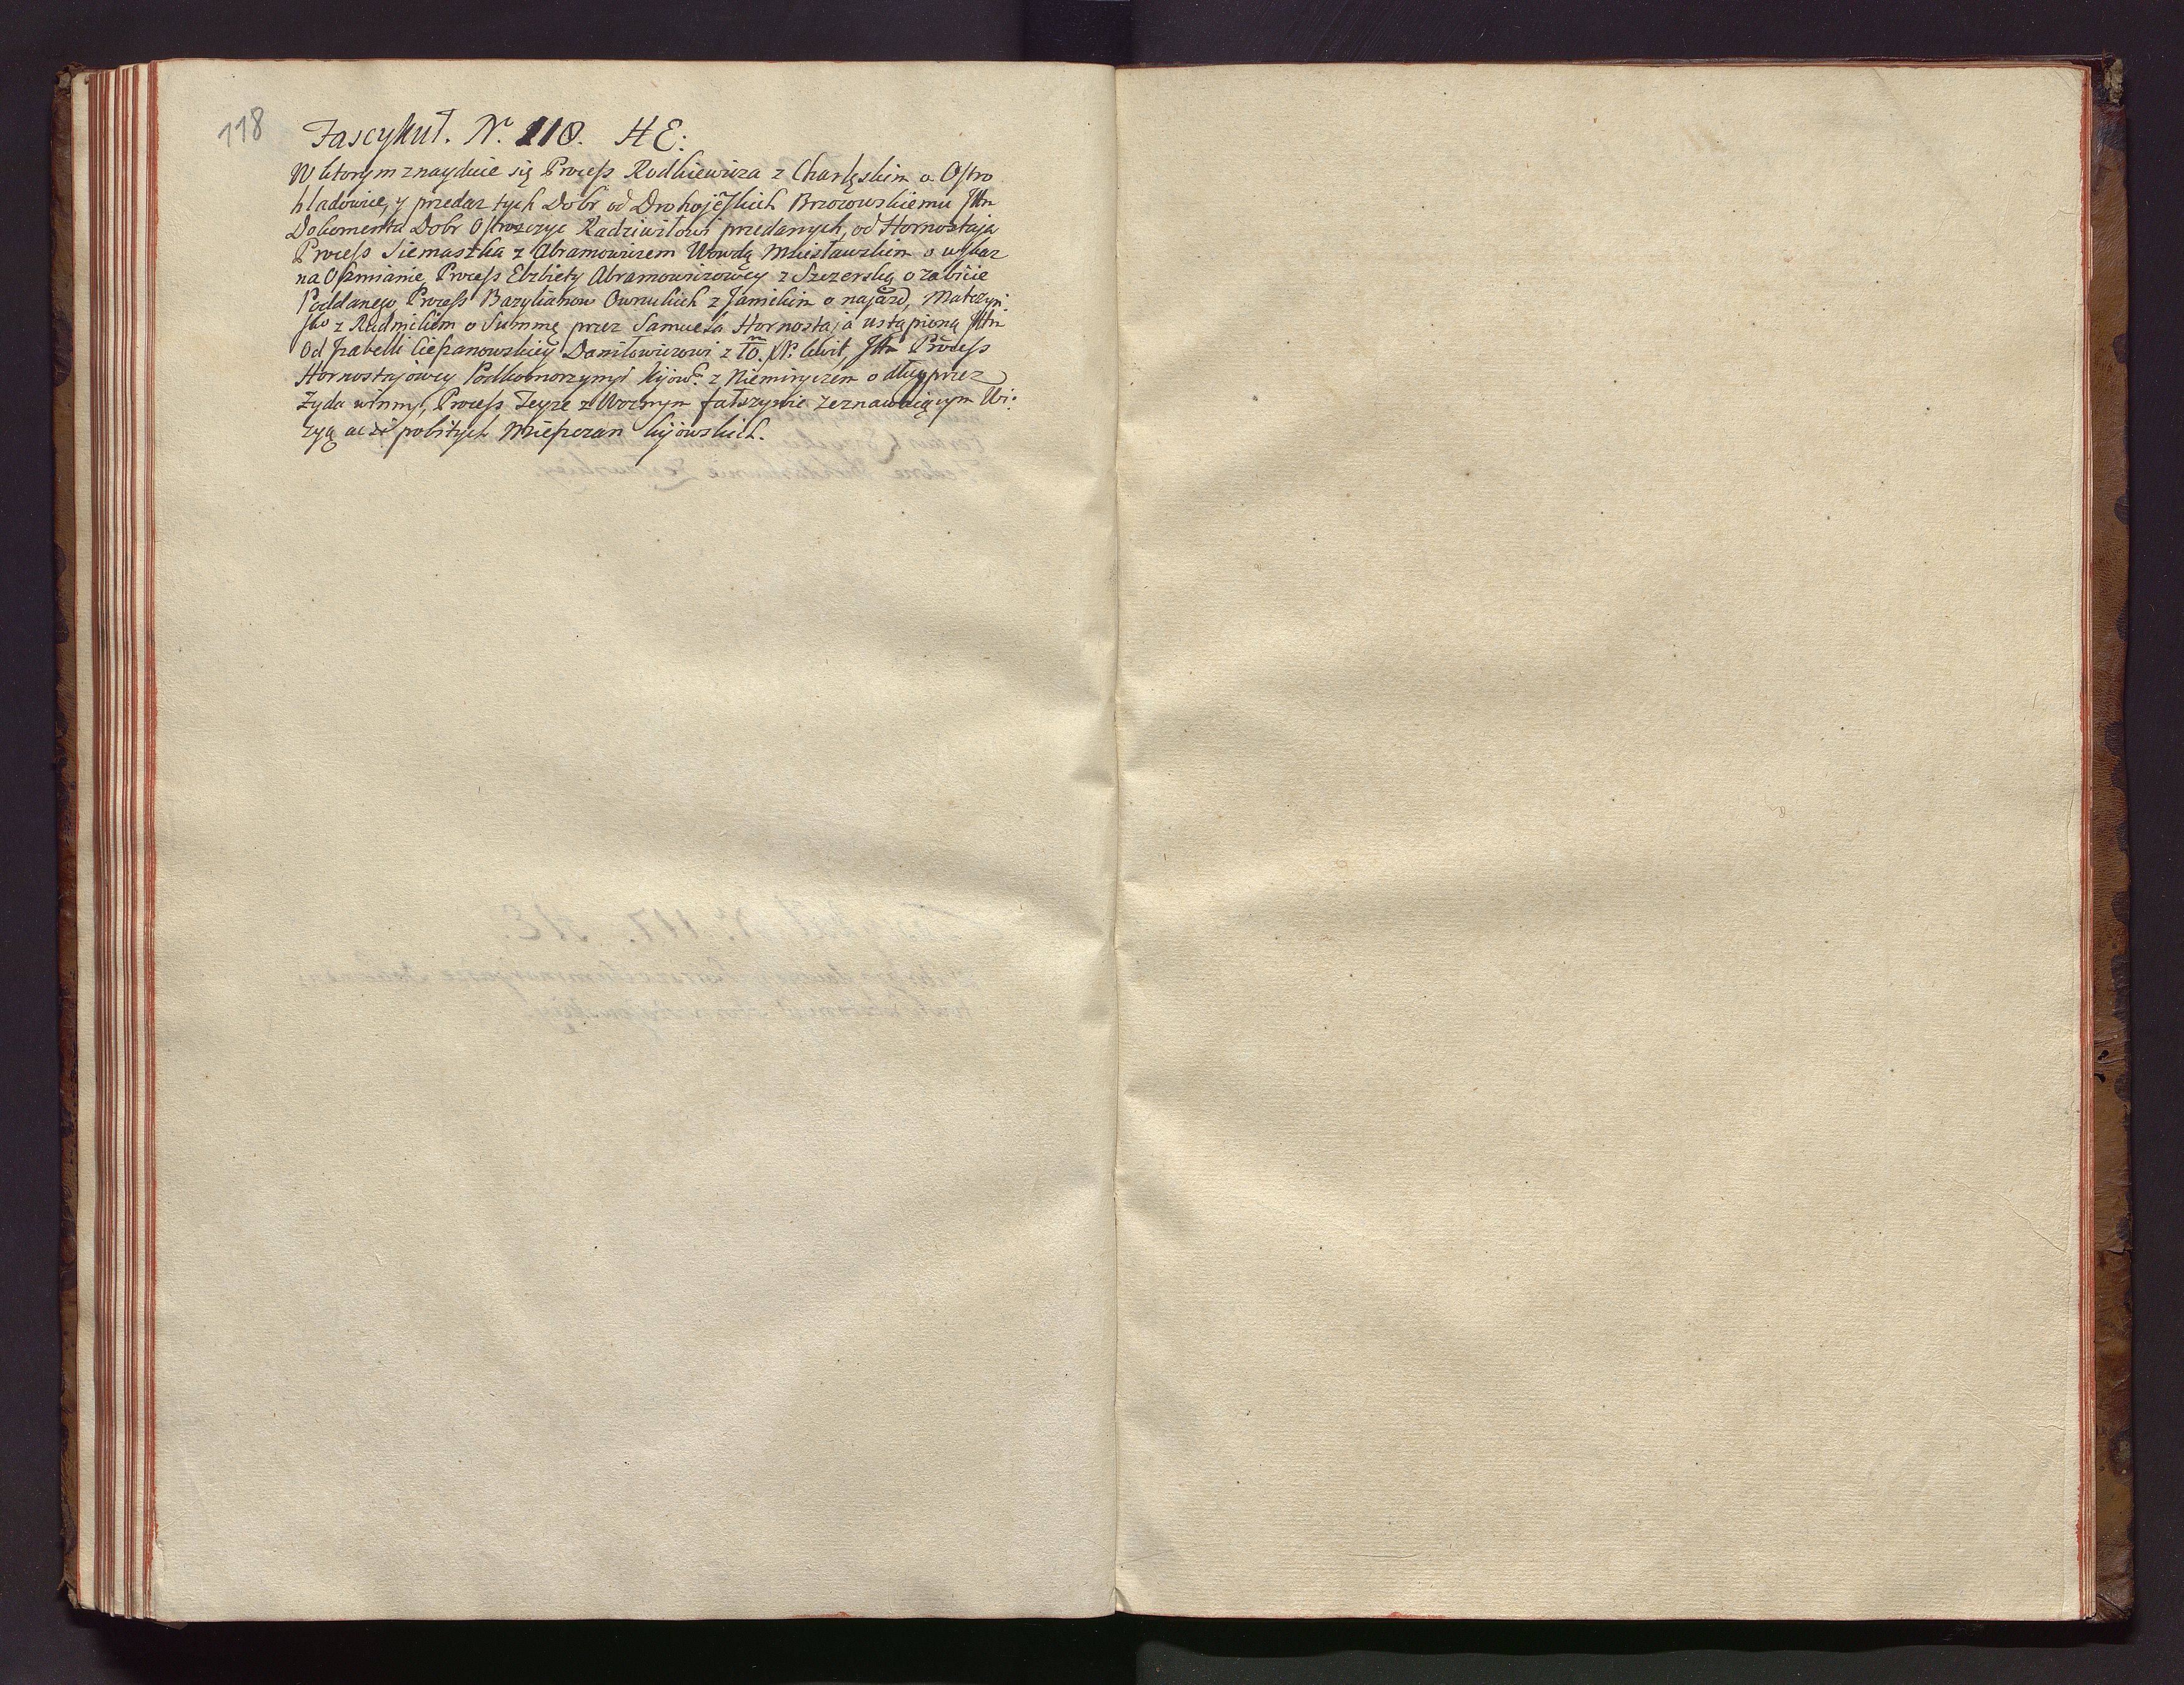 118
Fascykuł. Nr. 118. HE:
W ktorym znayduie się Process Rodkiewicza z Charlęskim o Ostro
hladowie, y przedaz tych Dobr od Drohojeskich Brzozowskiemu Itm
Dokomenta Dobr Ostroszyc Radziwiłłowi przedanych, od Hornostaja
Process Siemaszka z Abramowiczem Wowdą Mscisławskim o wskaz
na Oszmianie, Process Elzbiety Abramowiczowey z Szczerską o zabicie
Poddanego Process Bazylianow Owruckich z Janickim o najazd, Matczyn
sko z Rudnickim o Summę przez Samuela Hornostaja ustąpioną Itm
Od Izabelli Cieszanowskiey Daniłowiczowi z 10. Kwit, Itm Process
Hornostajowey Podkomorzyny Kijow: z Niemiryczem o dług przez
Zyda winny, Process Teyze z Woznym fałszywie zeznawaiącym Wi-
zyą pobitych Mieszczan kijowskich.